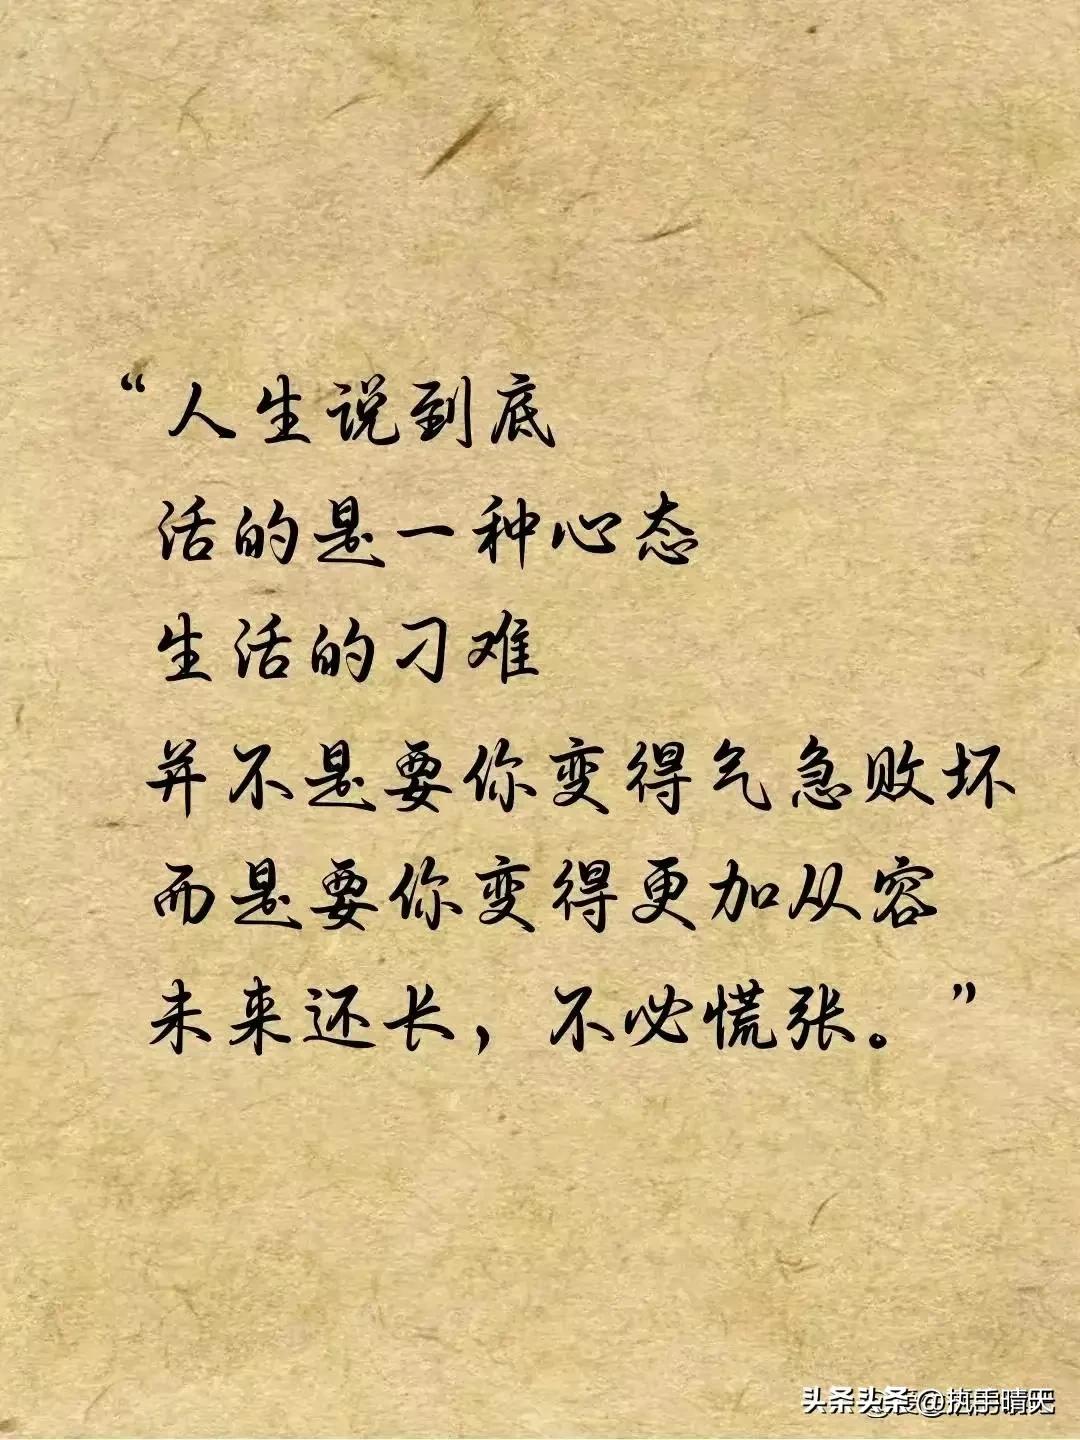 “人生说到底
活的是一种心态
生活的刁难
并不是要你变得气急败坏
而是要你变得更加从容
未来还长，不必慌张。”
头条头条@执手晴天